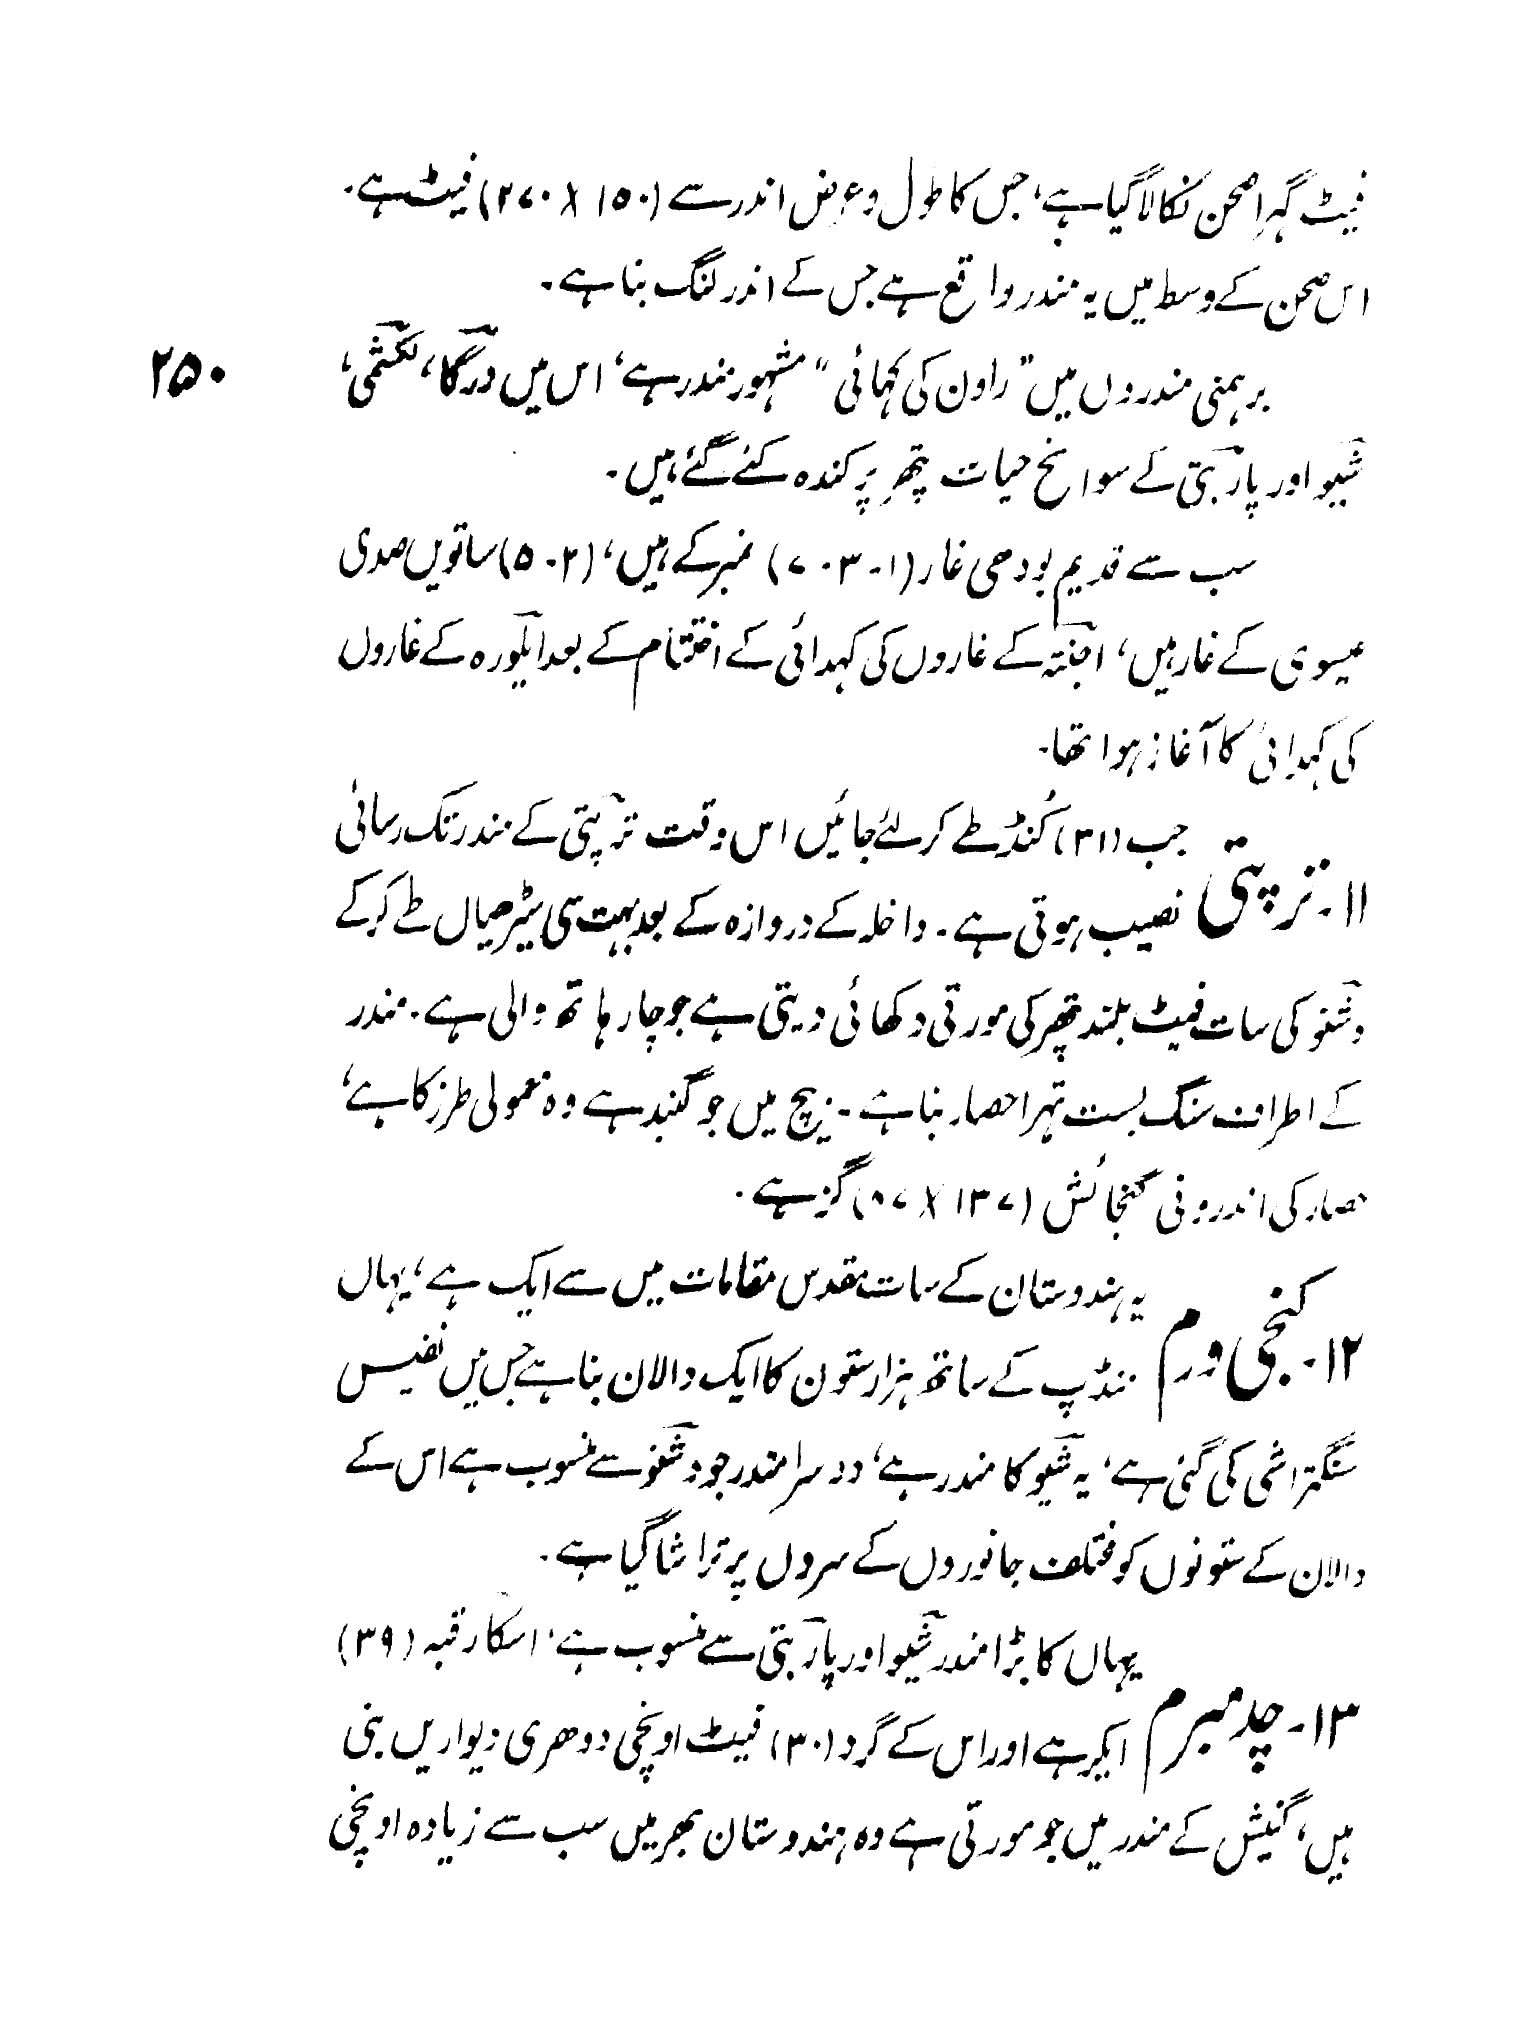 فیٹ گہرا صحن نکالا گیا ہے، جس کا طول و عرض اندر سے (۱۵۰ x ۲۷۰) فیٹ ہے۔
اس صحن کے وسط میں یہ مندر واقع ہے جس کے اندر لنگ بنا ہے۔
برہمنی مندروں میں "راون کی کہائی" مشہور مندر ہے، اس میں درگا، لکشمی،
۲۵۰
شیو اور پاربتی کے سوانح حیات پتھر پر کندہ کئے گئے ہیں۔
سب سے قدیم بودھی غار (۱-۳-۷) نمبر کے ہیں، (۲-۵) ساتویں صدی
عیسوی کے غار ہیں، اجنتہ کے غاروں کی کہدائی کے اختتام کے بعد ایلورہ کے غاروں
کی کہدائی کا آغاز ہوا تھا۔
جب (۳۱) کُنڈ طے کر لئے جائیں اس وقت ترپتی کے مندر تک رسائی
۱۱۔ ترپتی نصیب ہوتی ہے۔ داخلہ کے دروازہ کے بعد بہت سی سیڑھیاں طے کر کے
وشنو کی سات فیٹ بلند پتھر کی مورتی دکھائی دیتی ہے جو چار ہاتھ والی ہے۔ مندر
کے اطراف سنگ بست تہرا حصار بنا ہے۔ بیچ میں جو گنبد ہے وہ معمولی طرز کا ہے،
حصار کی اندرونی گنجائش (۱۳۷ x ۸۷) گز ہے۔
یہ ہندوستان کے سات مقدس مقامات میں سے ایک ہے، یہاں
۱۲۔ کنجی ورم منڈپ کے ساتھ ہزار ستون کا ایک دالان بنا ہے جس میں نفیس
سنگتراشی کی گئی ہے، یہ شیو کا مندر ہے، دوسرا مندر جو وشنو سے منسوب ہے اس کے
دالان کے ستونوں کو مختلف جانوروں کے سروں پر تراشا گیا ہے۔
یہاں کا بڑا مندر شیو اور پاربتی سے منسوب ہے، اسکا رقبہ (۳۹)
۱۳۔ چدمبرم ایکر ہے اور اس کے گرد (۳۰) فیٹ اونچی دوھری دیواریں بنی
ہیں، گنیش کے مندر میں جو مورتی ہے وہ ہندوستان بھر میں سب سے زیادہ اونچی